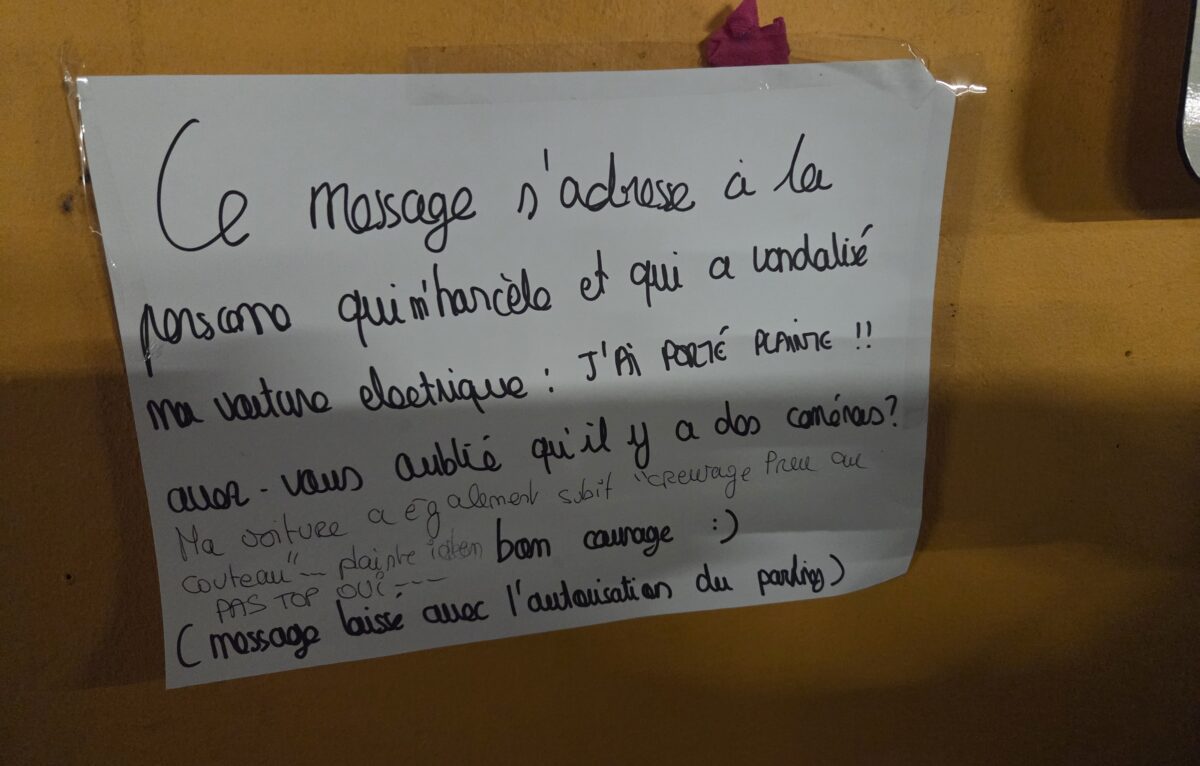 Ce message s'adresse à la
personne qui m'harcèle et qui a vandalisé
ma voiture electrique : J'AI PORTÉ PLAINTE !!
avez-vous oublié qu'il y a des caméras?
Ma voiture a également subit "crevage Pneu au
couteau"... plainte idem
bon courage :)
PAS TOP OUÏ ---
(message laissé avec l'autorisation du parking)